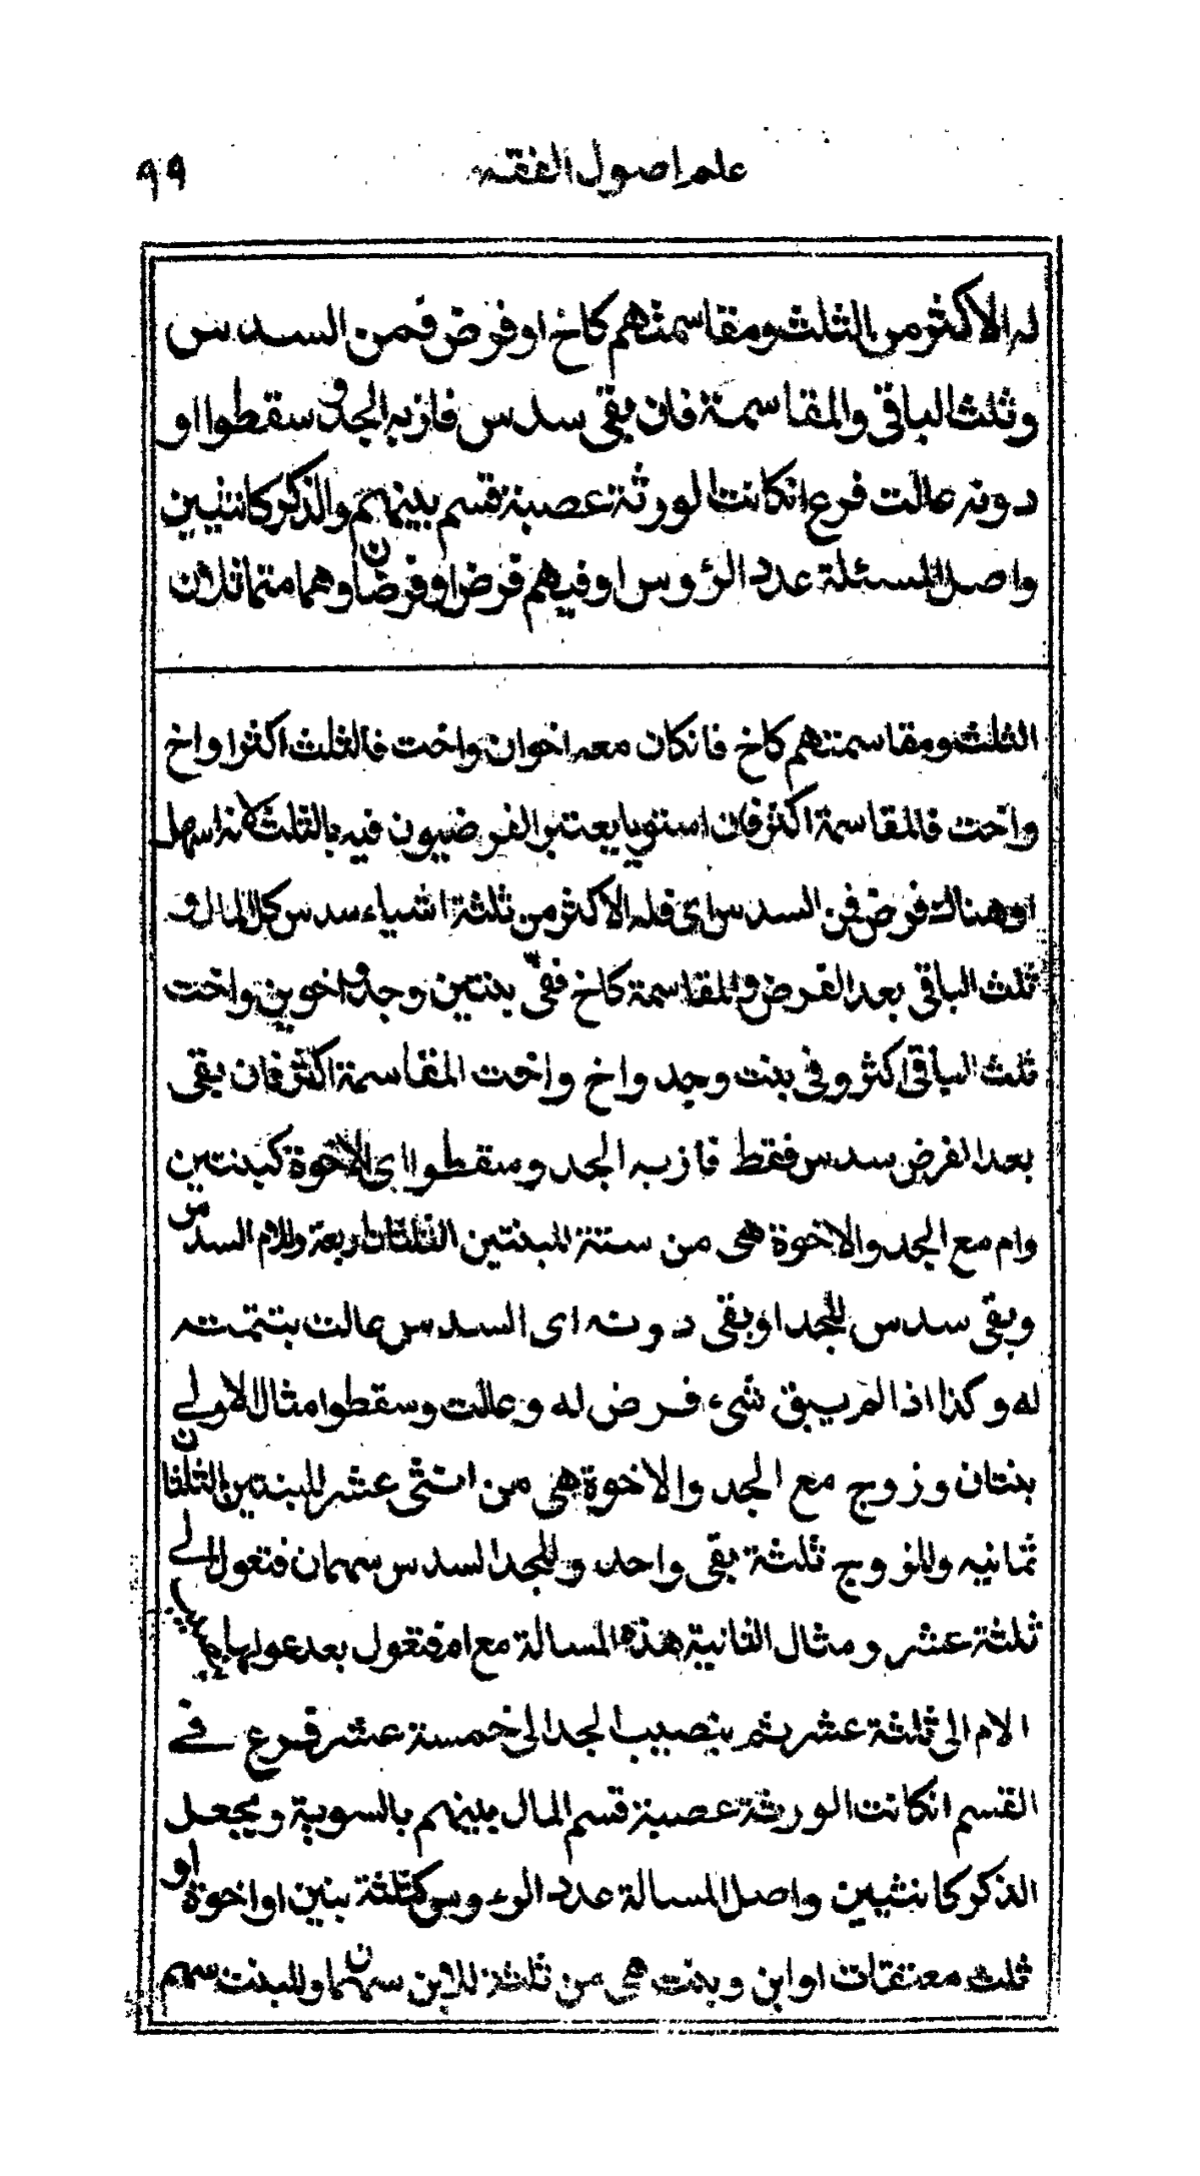 علم اصول الفقه
٩٩
له الاكثر من الثلث ومقاسمتهم كاخ او فرض فمن السدس
وثلث الباقي والمقاسمة فان بقي سدس فاز به الجد و سقطوا او
دونه عالت فرع انكانت الورثة عصبة قسم بينهم والذكر كانثيين
واصل المسئلة عدد الرؤوس او فيهم فرض او فرضان وهما متماثلان
الثلث ومقاسمتهم كاخ فانكان معه اخوان واخت فالثلث اكثر او اخ
واخت فالمقاسمة اكثر فان استويا يعتبر الفرضيون فيه بالثلث لانه اسهل
او هناك فرض فمن السدس اى فله الاكثر من ثلثة اشياء سدس كل المال و
ثلث الباقي بعد الفرض والمقاسمة كاخ ففي بنتين وجد واخوين واخت
ثلث الباقي اكثر وفي بنت وجد واخ واخت المقاسمة اكثر فان بقى
بعد الفرض سدس فقط فاز به الجد وسقطوا اى الاخوة كبنتين
وام مع الجد والاخوة هى من ستة للبنتين الثلثان اربعة وللام السدس
وبقى سدس للجد او بقى دونه اى السدس عالت بتتمته
له وكذا اذا لم يبق شىء فرض له وعالت وسقطوا مثال الاولى
بنتان وزوج مع الجد والاخوة هى من اثنى عشر للبنتين الثلثان
ثمانيه وللزوج ثلثة بقى واحد وللجد السدس سهمان فتعول الى
ثلثة عشر ومثال الثانية هذه المسالة مع ام فتعول بعد عولها بنصيب
الام الى ثلثة عشر ثم بنصيب الجد الى خمسة عشر فرع فى
القسم انكانت الورثة عصبة قسم المال بينهم بالسوية ويجعل
الذكر كانثيين واصل المسالة عدد الرءوس كثلثة بنين او اخوة او
ثلث معتقات او ابن وبنت هى من ثلثة للابن سهمان وللبنت سهم